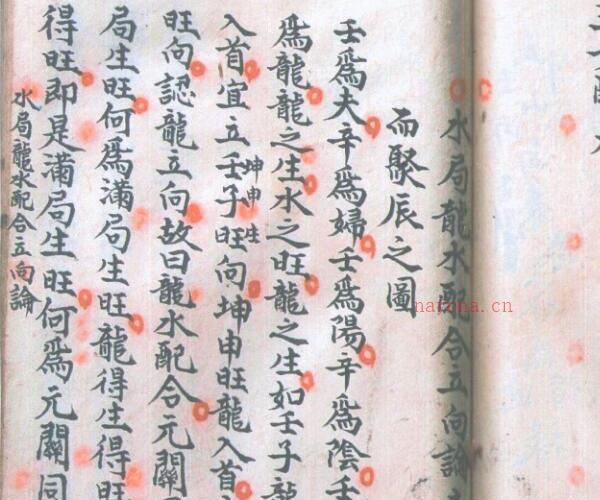 水局龍水配合立向論
而聚辰之圖
壬爲夫辛爲婦壬爲陽辛爲陰壬
爲龍龍之生水之旺龍之生如壬子龍
入首宜立壬子旺向坤申旺龍入首
坤申生
旺向認龍立向故曰龍水配合元關
局生旺何爲滿局生旺龍得生得旺
得旺即是滿局生旺何爲元關同
水局龍水配合立向論
natona.cn